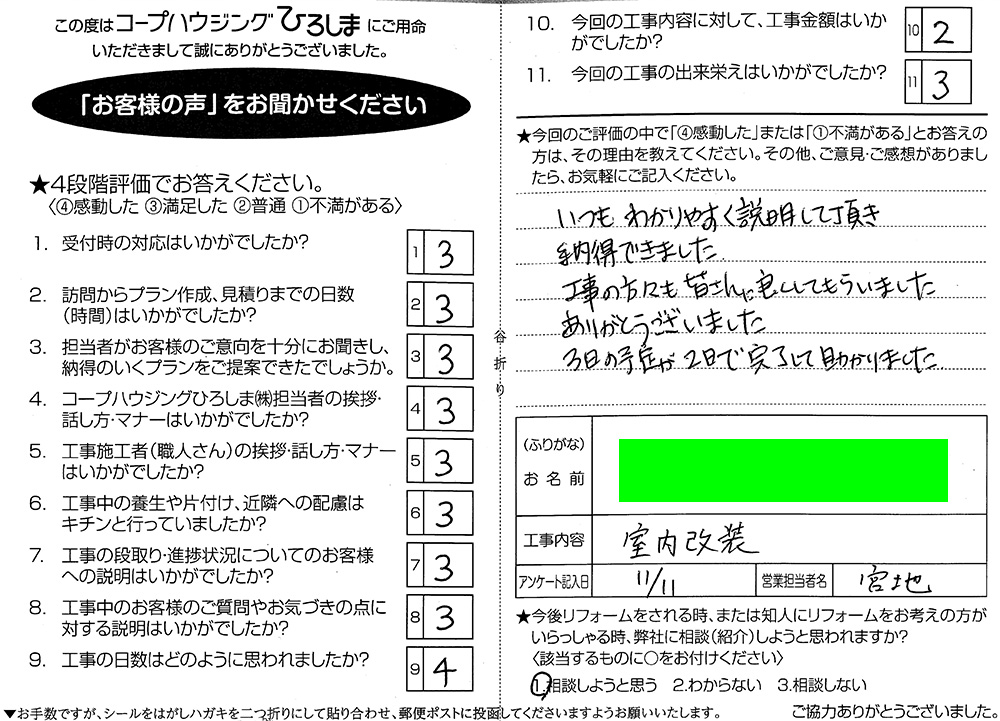 この度はコープハウジングひろしまにご用命
いただきまして誠にありがとうございました。
「お客様の声」をお聞かせください
★4段階評価でお答えください。
〈④感動した ③満足した ②普通 ①不満がある〉
1. 受付時の対応はいかがでしたか?
1 3
2. 訪問からプラン作成、見積りまでの日数
(時間)はいかがでしたか?
2 3
3. 担当者がお客様のご意向を十分にお聞きし、
納得のいくプランをご提案できたでしょうか。
3 3
4. コープハウジングひろしま㈱担当者の挨拶・
話し方・マナーはいかがでしたか?
4 3
5. 工事施工者(職人さん)の挨拶・話し方・マナー
はいかがでしたか?
5 3
6. 工事中の養生や片付け、近隣への配慮は
キチンと行っていましたか?
6 3
7. 工事の段取り・進捗状況についてのお客様
への説明はいかがでしたか?
7 3
8. 工事中のお客様のご質問やお気づきの点に
対する説明はいかがでしたか?
8 3
9. 工事の日数はどのように思われましたか?
9 4
谷折り
10. 今回の工事内容に対して、工事金額はいか
がでしたか?
10 2
11. 今回の工事の出来栄えはいかがでしたか?
11 3
★今回のご評価の中で「④感動した」または「①不満がある」とお答えの
方は、その理由を教えてください。その他、ご意見・ご感想がありまし
たら、お気軽にご記入ください。
いつも わかりやすく説明して頂き
納得できました
工事の方々も 皆さんに良くしてもらいました
ありがとうございました
3日の予定が 2日で完了して助かりました
(ふりがな)
お名前
工事内容 室内改装
アンケート記入日 11/11 営業担当者名 宮地
★今後リフォームをされる時、または知人にリフォームをお考えの方が
いらっしゃる時、弊社に相談(紹介)しようと思われますか?
〈該当するものに○をお付けください〉
1.相談しようと思う 2.わからない 3.相談しない
▼お手数ですが、シールをはがしハガキを二つ折りにして貼り合わせ、郵便ポストに投函してくださいますようお願いいたします。
ご協力ありがとうございました。